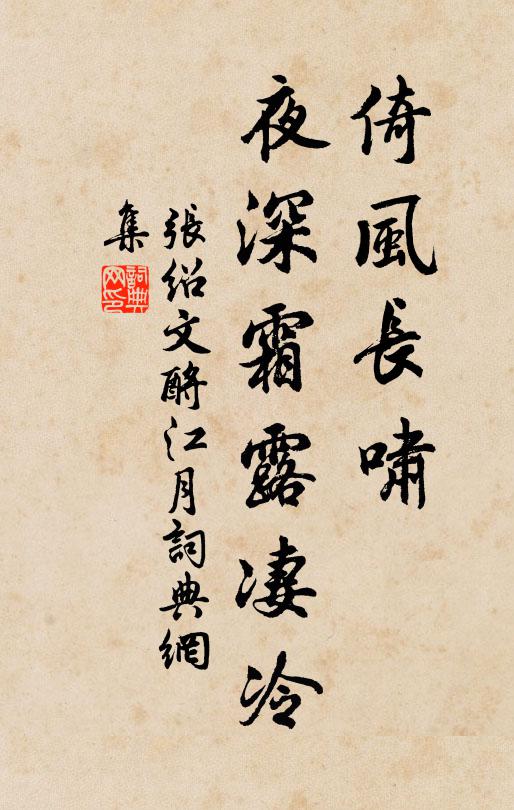 倚風長嘯
夜深霜露凄冷
張紹文酹江月詞典網
集
詞典
网印